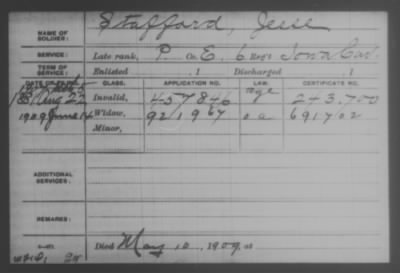 NAME OF SOLDIER: Stafford, Jesse
SERVICE: Late rank, P Co. E, 6 Reg't Iowa Cav.
TERM OF SERVICE: Enlisted , 1 Discharged , 1
DATE OF FILING. CLASS. APPLICATION NO. LAW. CERTIFICATE NO.
Aug 22 Invalid, 457846 age 243,700
1909 June 14 Widow, 921967 o a 691702
Minor,
ADDITIONAL SERVICES:
REMARKS:
Died May 10, 1909, at